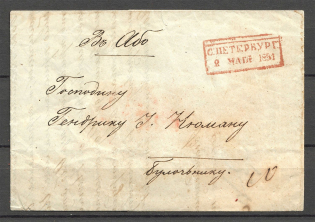 Въ Або
С.ПЕТЕРБУРГ.
2 МАЯ 1851
Господину
Гендрику I. Кюману
Булочнику.